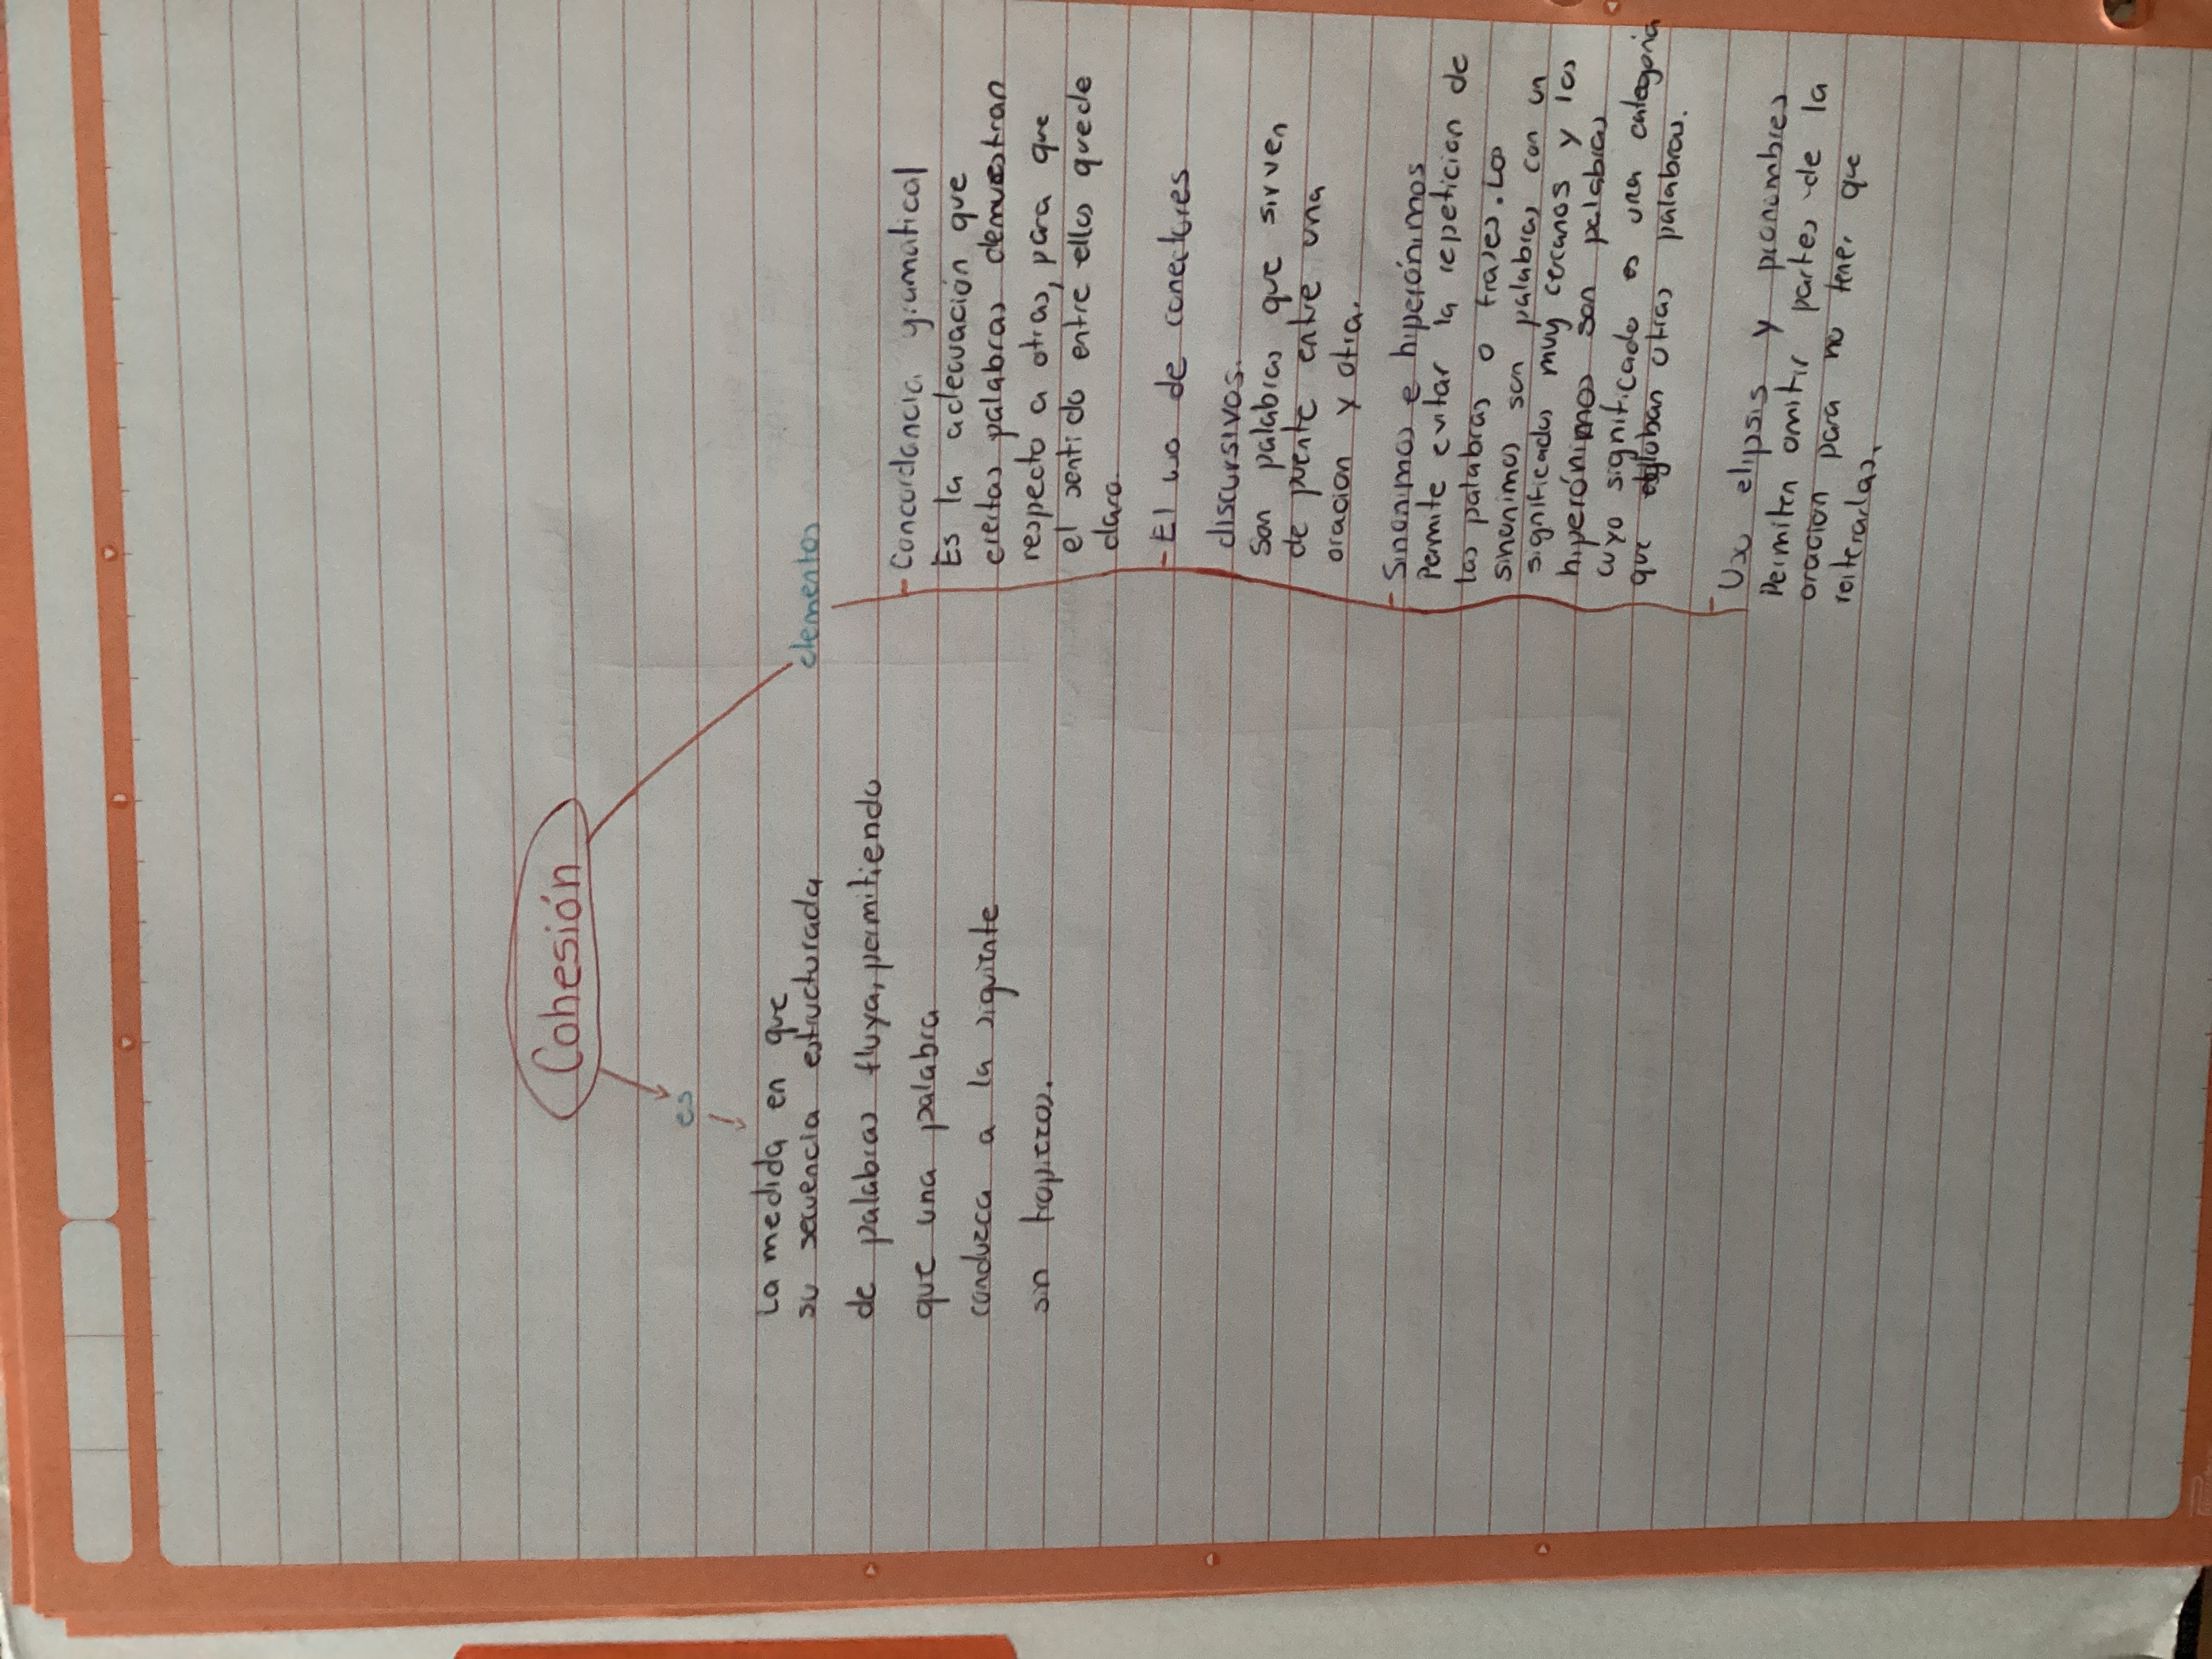 Cohesión
es
La medida en que
su secuencia estructurada
de palabras fluya, permitiendo
que una palabra
conduzca a la siguiente
sin tropiezos.
elementos
- Concordancia gramatical
Es la adecuación que
ciertas palabras demuestran
respecto a otras, para que
el sentido entre ellas quede
claro.
- El uso de conectores
discursivos.
Son palabras que sirven
de puente entre una
oracion y otra.
- Sinonimos e hiperónimos
Permite evitar la repeticion de
las palabras o frases. Los
sinonimos son palabras con un
significados muy cercanos y los
hiperónimos son palabras
cuyo significado es una categoria
que engloban otras palabras.
- Uso elipsis y pronombres
Permiten omitir partes de la
oracion para no tener que
reiterarlas.